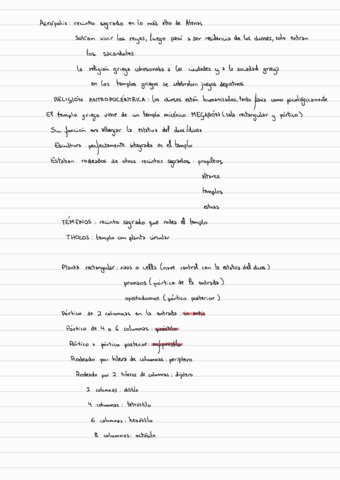 Acrópolis: recinto sagrado en lo más alto de Atenas
Solían vivir los reyes, luego pasó a ser residencia de los dioses, solo entran
los sacerdotes.
la religión griega cohesionaba a las ciudades y a la sociedad griega
en los templos griegos se celebraban juegos deportivos
RELIGIÓN ANTROPOCÉNTRICA: los dioses están humanizados, tanto física como psicológicamente
El templo griego viene de un templo micénico: MEGARÓN (sala rectangular y pórtico)
Su función era albergar la estatua del dios/diosa
Escultura perfectamente integrada en el templo
Estaban rodeados de otros recintos sagrados: propileos
altares
templos
estoas
TÉMENOS: recinto sagrado que rodea el templo
THOLOS: templo con planta circular
Planta rectangular: naos o cella (nave central con la estatua del dios)
pronaos (pórtico de la entrada)
opistodomos (pórtico posterior)
Pórtico de 2 columnas en la entrada: in antis
Pórtico de 4 o 6 columnas: próstilo
Pórtico + pórtico posterior: anfipróstilo
Rodeado por hilera de columnas: períptero
Rodeado por 2 hileras de columnas: díptero
2 columnas: dístilo
4 columnas: tetrástilo
6 columnas: hexástilo
8 columnas: octástilo